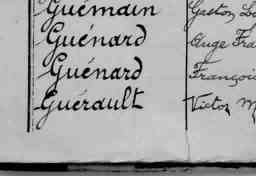 Guémain Gaston
Guénard Ange
Guénard François
Guérault Victor